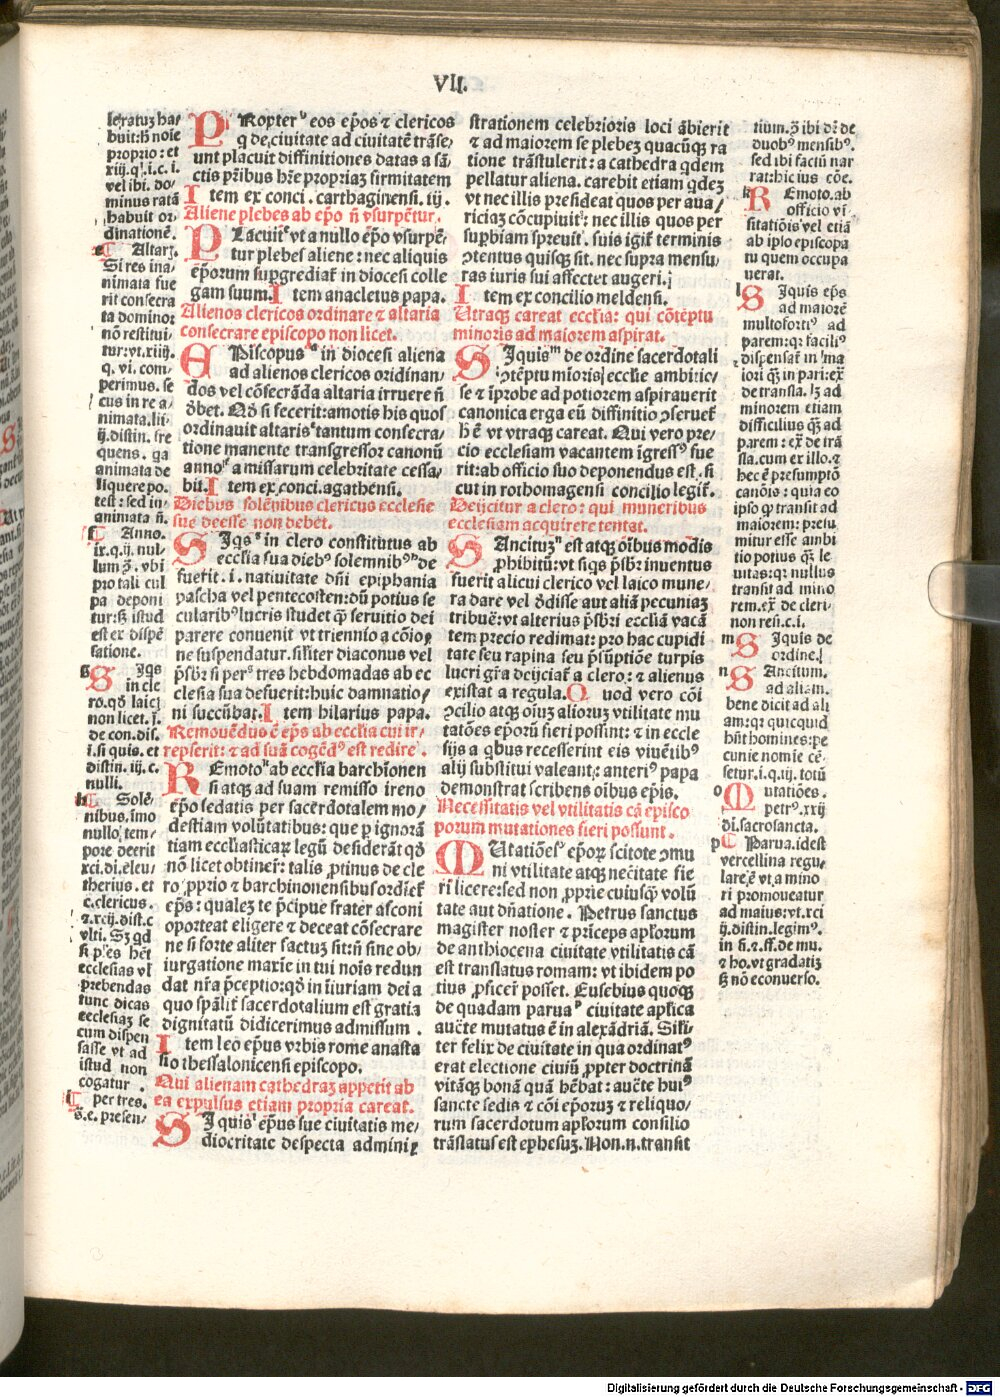 VII.
seratuz ha/
buit:h̄ noīe
proprio: et
xiij.q.i.c.i.
vel ibi. do/
minus ratā
habuit or/
dinationē.
e Altarʒ.
Si res ina/
nimata fue
rit consecra
ta dominor
nō restitui/
tur:vt.xiiij.
q. vi. com/
perimus. se
cus in re a/
nimata.lii/
ij.distin. fre
quens. ga
animata de
liquere po/
test: sed in/
animata n̄.
f Anno.
ix.q.ij. nul/
lum ḡ. vbi
pro tali cul
pa deponi
tur:ß istud
est ex dispē
satione.
g SIqs
in cle
ro.qď laici
non licet. j.
de con.dis.
i.si quis. et
distin. iij. c.
nulli.
h Solē/
nibus.īmo
nullo tem/
pore deerit
xci.di.eleu/
therius. et
c.clericus.
⁊.xcij.dist.c
vlti. Sʒ qd
si p̄es hēt
ecclesias vł
prebendas
tunc dicas
ecclesiaʒ se
cum dispen
sasse vt ad
istud non
cogatur .
i per tres.
s̄.e. presen/
PRopter eos ep̄os ⁊ clericos
q de ciuitate ad ciuitatē trāse/
unt placuit diffinitiones datas a sā/
ctis pr̄ibus hr̄e propriaʒ firmitatem
Item ex conci . carthaginensi. iij.
Aliene plebes ab ep̄o n̄ vsurpētur.
PLacuit vt a nullo ep̄o vsurpē/
tur plebes aliene : nec aliquis
ep̄orum supgrediať in diocesi colle
gam suum. Item anacletus papa.
Alienos clericos ordinare ⁊ altaria
consecrare episcopo non licet.
EPiscopus in diocesi aliena
ad alienos clericos oridinan/
dos vel cōsecrāda altaria irruere n̄
ďbet. Qď si fecerit:amotis his quos
ordinauit altaris tantum consecra/
tione manente transgressor canonū
anno a missarum celebritate cessa/
bit. Item ex conci.agathensi.
Diebus solēnibus clericus ecclesie
sue deesse non debet.
SIqs in clero constitutus ab
ecclīa sua dieb⁹ solemnib⁹ de
fuerit: i . natiuitate dn̄i epiphania
pascha vel pentecosten:dū potius se
cularib⁹ lucris studet q̄ seruitio dei
parere conuenit vt triennio a cōioe
ne suspendatur. silīter diaconus vel
p̄sbr̄ si per tres hebdomadas ab ec
clesia sua defuerit:huic damnatio/
ni succūbat. Item hilarius papa.
Remouēdus ē ep̄s ab ecclīa cui ir/
repserit: ⁊ ad suā cogēď est redire .
REmoto ab ecclīa barchīonen
si atqʒ ad suam remisso ireno
ep̄o sedatis per sacerdotalem mo/
destiam volūtatibus: que p ignorā
tiam eccliasticaʒ legū desiderāt qď
nō licet obtinerī: talis ꝓtinus de cle
ro ꝓprio ⁊ barchinonensibus ordīeť
ep̄s: qualeʒ te p̄cipue frater asconi
oporteat eligere ⁊ deceat cōsecrare
ne si forte aliter factuʒ sit:n̄ sine ob/
iurgatione maxīe in tui nois redun
dat nr̄a p̄ceptio:qď in īiuriam dei a
quo sp̄alīt sacerdotalium est gratia
dignitatū didicerimus admissum .
Item leo ep̄us vrbis rome anasta
sio thessalonicensi episcopo.
Qui alienam cathedraʒ appetit ab
ea expulsus etiam propria careat.
SI quis ep̄us sue ciuitatis me/
diocritate despecta admini⸗
strationem celebrioris loci ābierit
⁊ ad maiorem se plebeʒ quacūqʒ ra
tione trāstulerit: a cathedra qdem
pellatur aliena. carebit etiam qdeʒ
vt nec illis presideat quos per aua/
riciaʒ cōcupiuit: nec illis quos per
supbiam spreuit. suis igiť terminis
ↄtentus quisqʒ sit. nec supra mensu/
ras iuris sui affectet augeri.j
Item ex concilio meldensi.
Utraqʒ careat ecclīa: qui cōtēptu
minoris ad maiorem aspirat.
SIquis de ordine sacerdotali
ↄtēptu mīoris ecclīe ambitic/
se ⁊ īprobe ad potiorem aspirauerit
canonica erga eū diffinitio ↄserueť
h̄ ē vt vtraqʒ careat. Qui vero pre/
cio ecclesiam vacantem īgress⁹ fue
rit:ab officio suo deponendus est.si
cut in rothomagensi concilio legiť.
Deijcitur a clero: qui muneribus
ecclesiam acquirere tentat.
SAncituʒ est atqʒ oībus modis
ꝓhibitū: vt siqs p̄sbr̄ inuentus
fuerit alicui clerico vel laico mune/
ra dare vel ď̄disse aut aliā pecuniaʒ
tribuē: vt alterius p̄sbr̄i ecclīā vacā
tem precio redimat: pro hac cupidi
tate seu rapina seu p̄sūptiōe turpis
lucri gr̄a deijciať a clero: ⁊ alienus
existat a regula. Quod vero cōi
ↄcilio atqʒ oīuʒ alioruʒ vtilitate mu
tatōes ep̄orū fieri possint: ⁊ in eccle
sijs a qbus recesserint eis viuētib⁹
alij substitui valeant: anteri⁹ papa
demonstrat scribens oībus ep̄is.
Necessitatis vel vtilitatis cā episco
porum mutationes fieri possunt .
MUtatiōes ep̄orʒ scitote ↄmu
ni vtilitate atqʒ necītate fie
ri licere:sed non ꝓprie cuiusqʒ volū
tate aut dn̄atione . Petrus sanctus
magister noster ⁊ prīceps apłorum
de anthiocena ciuitate vtilitatis cā
est translatus romam: vt ibidem po
tius ꝓficerē posset. Eusebius quoqʒ
de quadam parua ciuitate apłica
auc̄te mutatus ē in alexādriā. Silī/
ter felix de ciuitate in qua ordinat⁹
erat electione ciuiū ꝓpter doctrinā
vitāqʒ bonā quā hēbat: auc̄te hui⁹
sancte sedis ⁊ cōi ep̄oruʒ ⁊ reliquo/
rum sacerdotum apłorum consilio
trāslatus est ephesuʒ. Non.n.transit
tium.ḡ ibi dʒ de
duob⁹ mensib⁹.
sed ibi faciū nar
rat:hic ius cōe.
k REmoto.ab
officio vi
sitatiōis vel etiā
ab ip̄o episcopa
tu quem occupa
uerat.
l SIquis ep̄s
ad maiorē
multoforti⁹ ad
parem:qr facili⁹
dispensat in ma
iori qʒ in pari:ex̄
de transla. lʒ ad
minorem etiam
difficilius qʒ ad
parem : ex̄ de trā
sla.cum ex illo.⁊
hec ē presumptō
canōis: quia eo
ipso qʒ transit ad
maiorem: presu
mitur esse ambi
tio potius qʒ le
uitas:qr nullus
transit ad mino
rem.ex̄ de cleri/
non resi.c.i.
m SIquis de
ordine.j
n SAncitum.
ad aliam.
bene dicit ad ali
am:qr quicquid
hn̄t homines:pe
cunie nomīe cē/
setur.i.q.iij. totū
o MUtatiōes.
petr⁹.xxij
di.sacrosancta.
p Parua.idest
vercellina regu/
lare ē vt a mino
ri promoueatur
ad maius:vt.xci
ij.distin.legim⁹.
in fi.⁊.ff.de mu.
⁊ ho.vt gradatiʒ
ß nō econuerso.
Digitalisierung gefördert durch die Deutsche Forschungsgemeinschaft - DFG